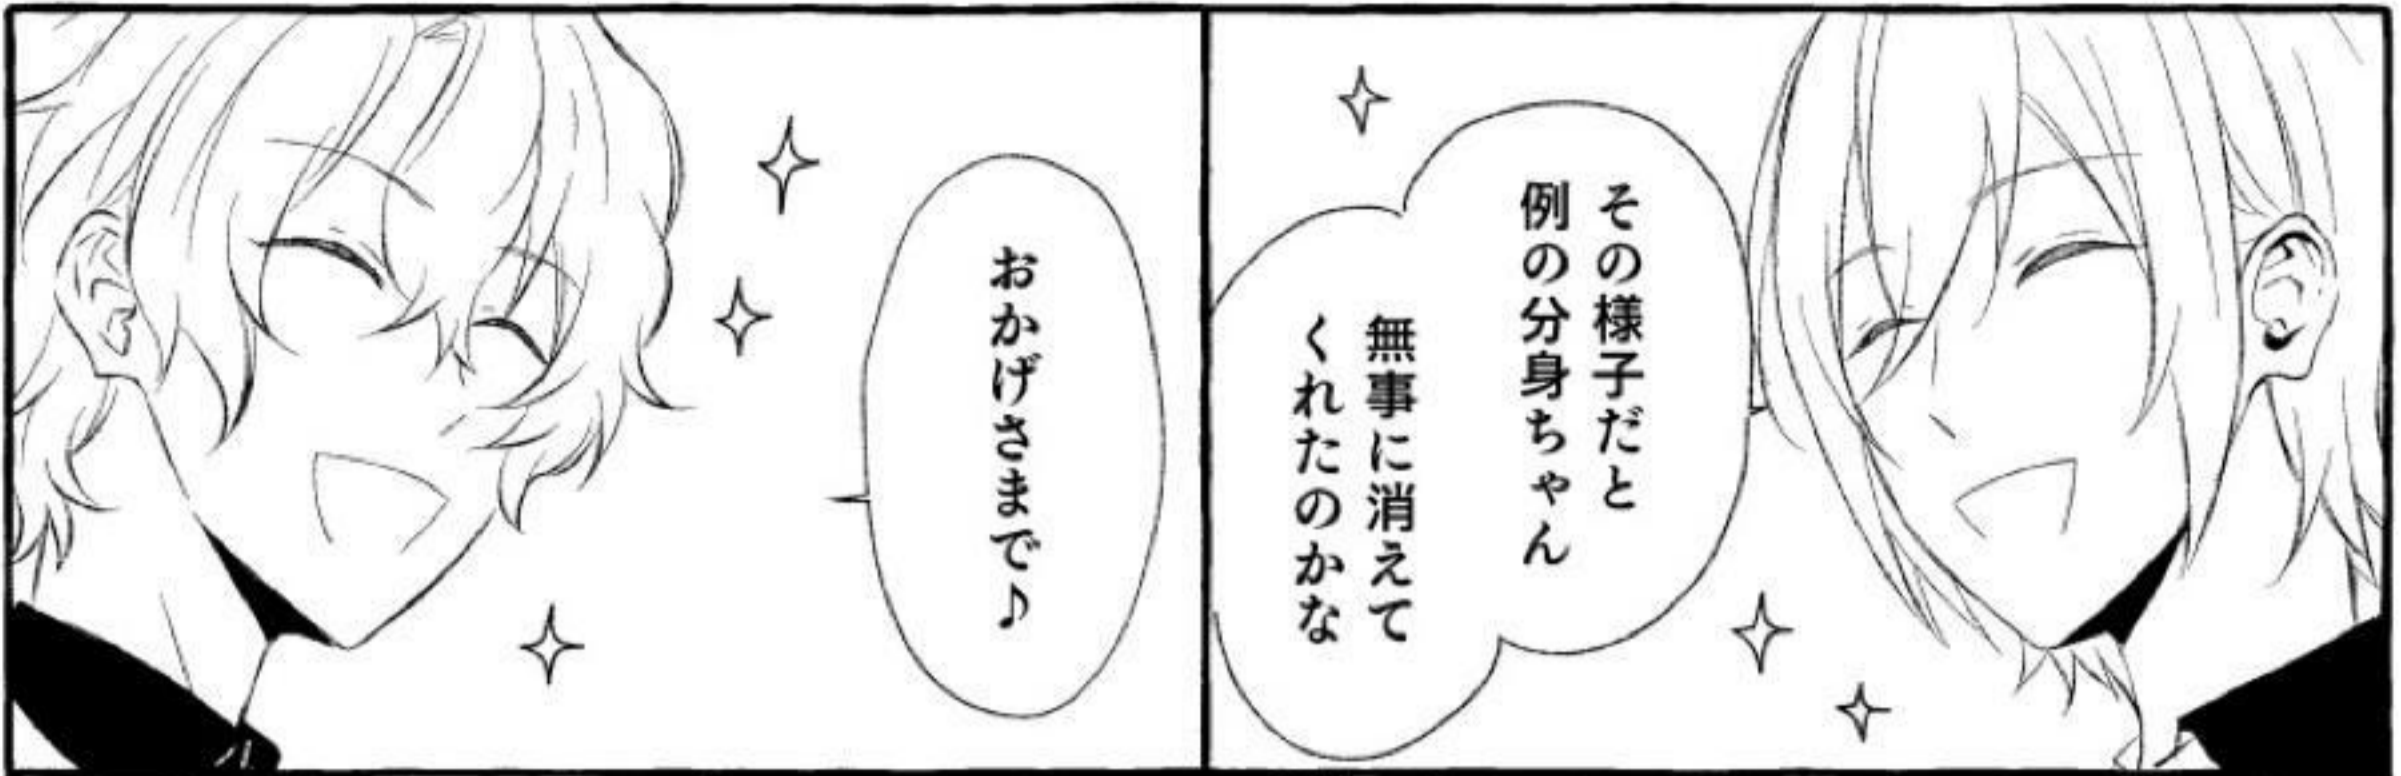 その様子だと
例の分身ちゃん
無事に消えて
くれたのかな
おかげさまで♪